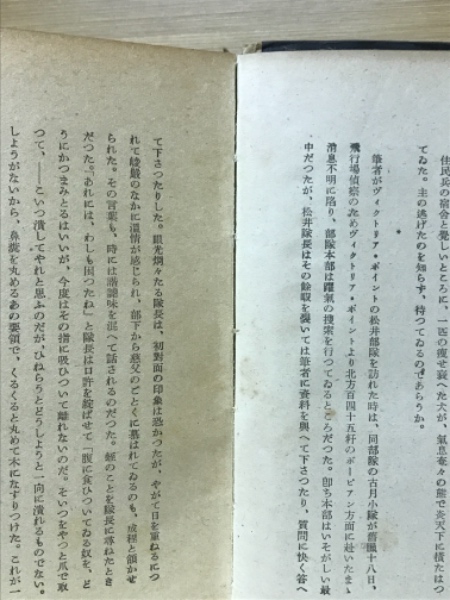 住民兵の宿舍と覺しいところに、一匹の瘦せ衰へた犬が、氣息奄々の態で炎天下に横たはつ
てゐた。主の逃げたのを知らず、待つてゐるのであらうか。
*
筆者がヴィクトリア・ポイントの松井部隊を訪れた時は、同部隊の古月小隊が舊臘十八日、
飛行場偵察のためヴィクトリア・ポイントより北方百四十五粁のボーピアン方面に赴いたまゝ
消息不明に陷り、部隊本部は躍氣の搜索を行つてゐるところだつた。卽ち本部はいそがしい最
中だつたが、松井隊長はその餘暇を割いては筆者に資料を與へて下さつたり、質問に快く答へ
て下さつたりした。眼光烱々たる隊長は、初對面の印象は恐かつたが、やがて日を重ねるにつ
れて峻嚴のなかに溫情が感じられ、部下から慈父のごとくに慕はれてゐるのも、成程と頷かせ
られた。その言葉も、時には諧謔味を混へて話されるのだつた。蛭のことを隊長に尋ねたとき
だつた。「あれには、わしも困つたね」と隊長は口許を綻ばせて「腹に食ひついてゐる奴を、ど
うにかつまみとるはいいが、今度はその指に吸ひついて離れないのだ。そいつをやつと爪で取
つて、――こいつ潰してやれと思ふのだが、ひねらうとどうしようと一向に潰れるものでない。
しようがないから、鼻糞を丸めるあの要領で、くるくると丸めて木になすりつけた。これが一